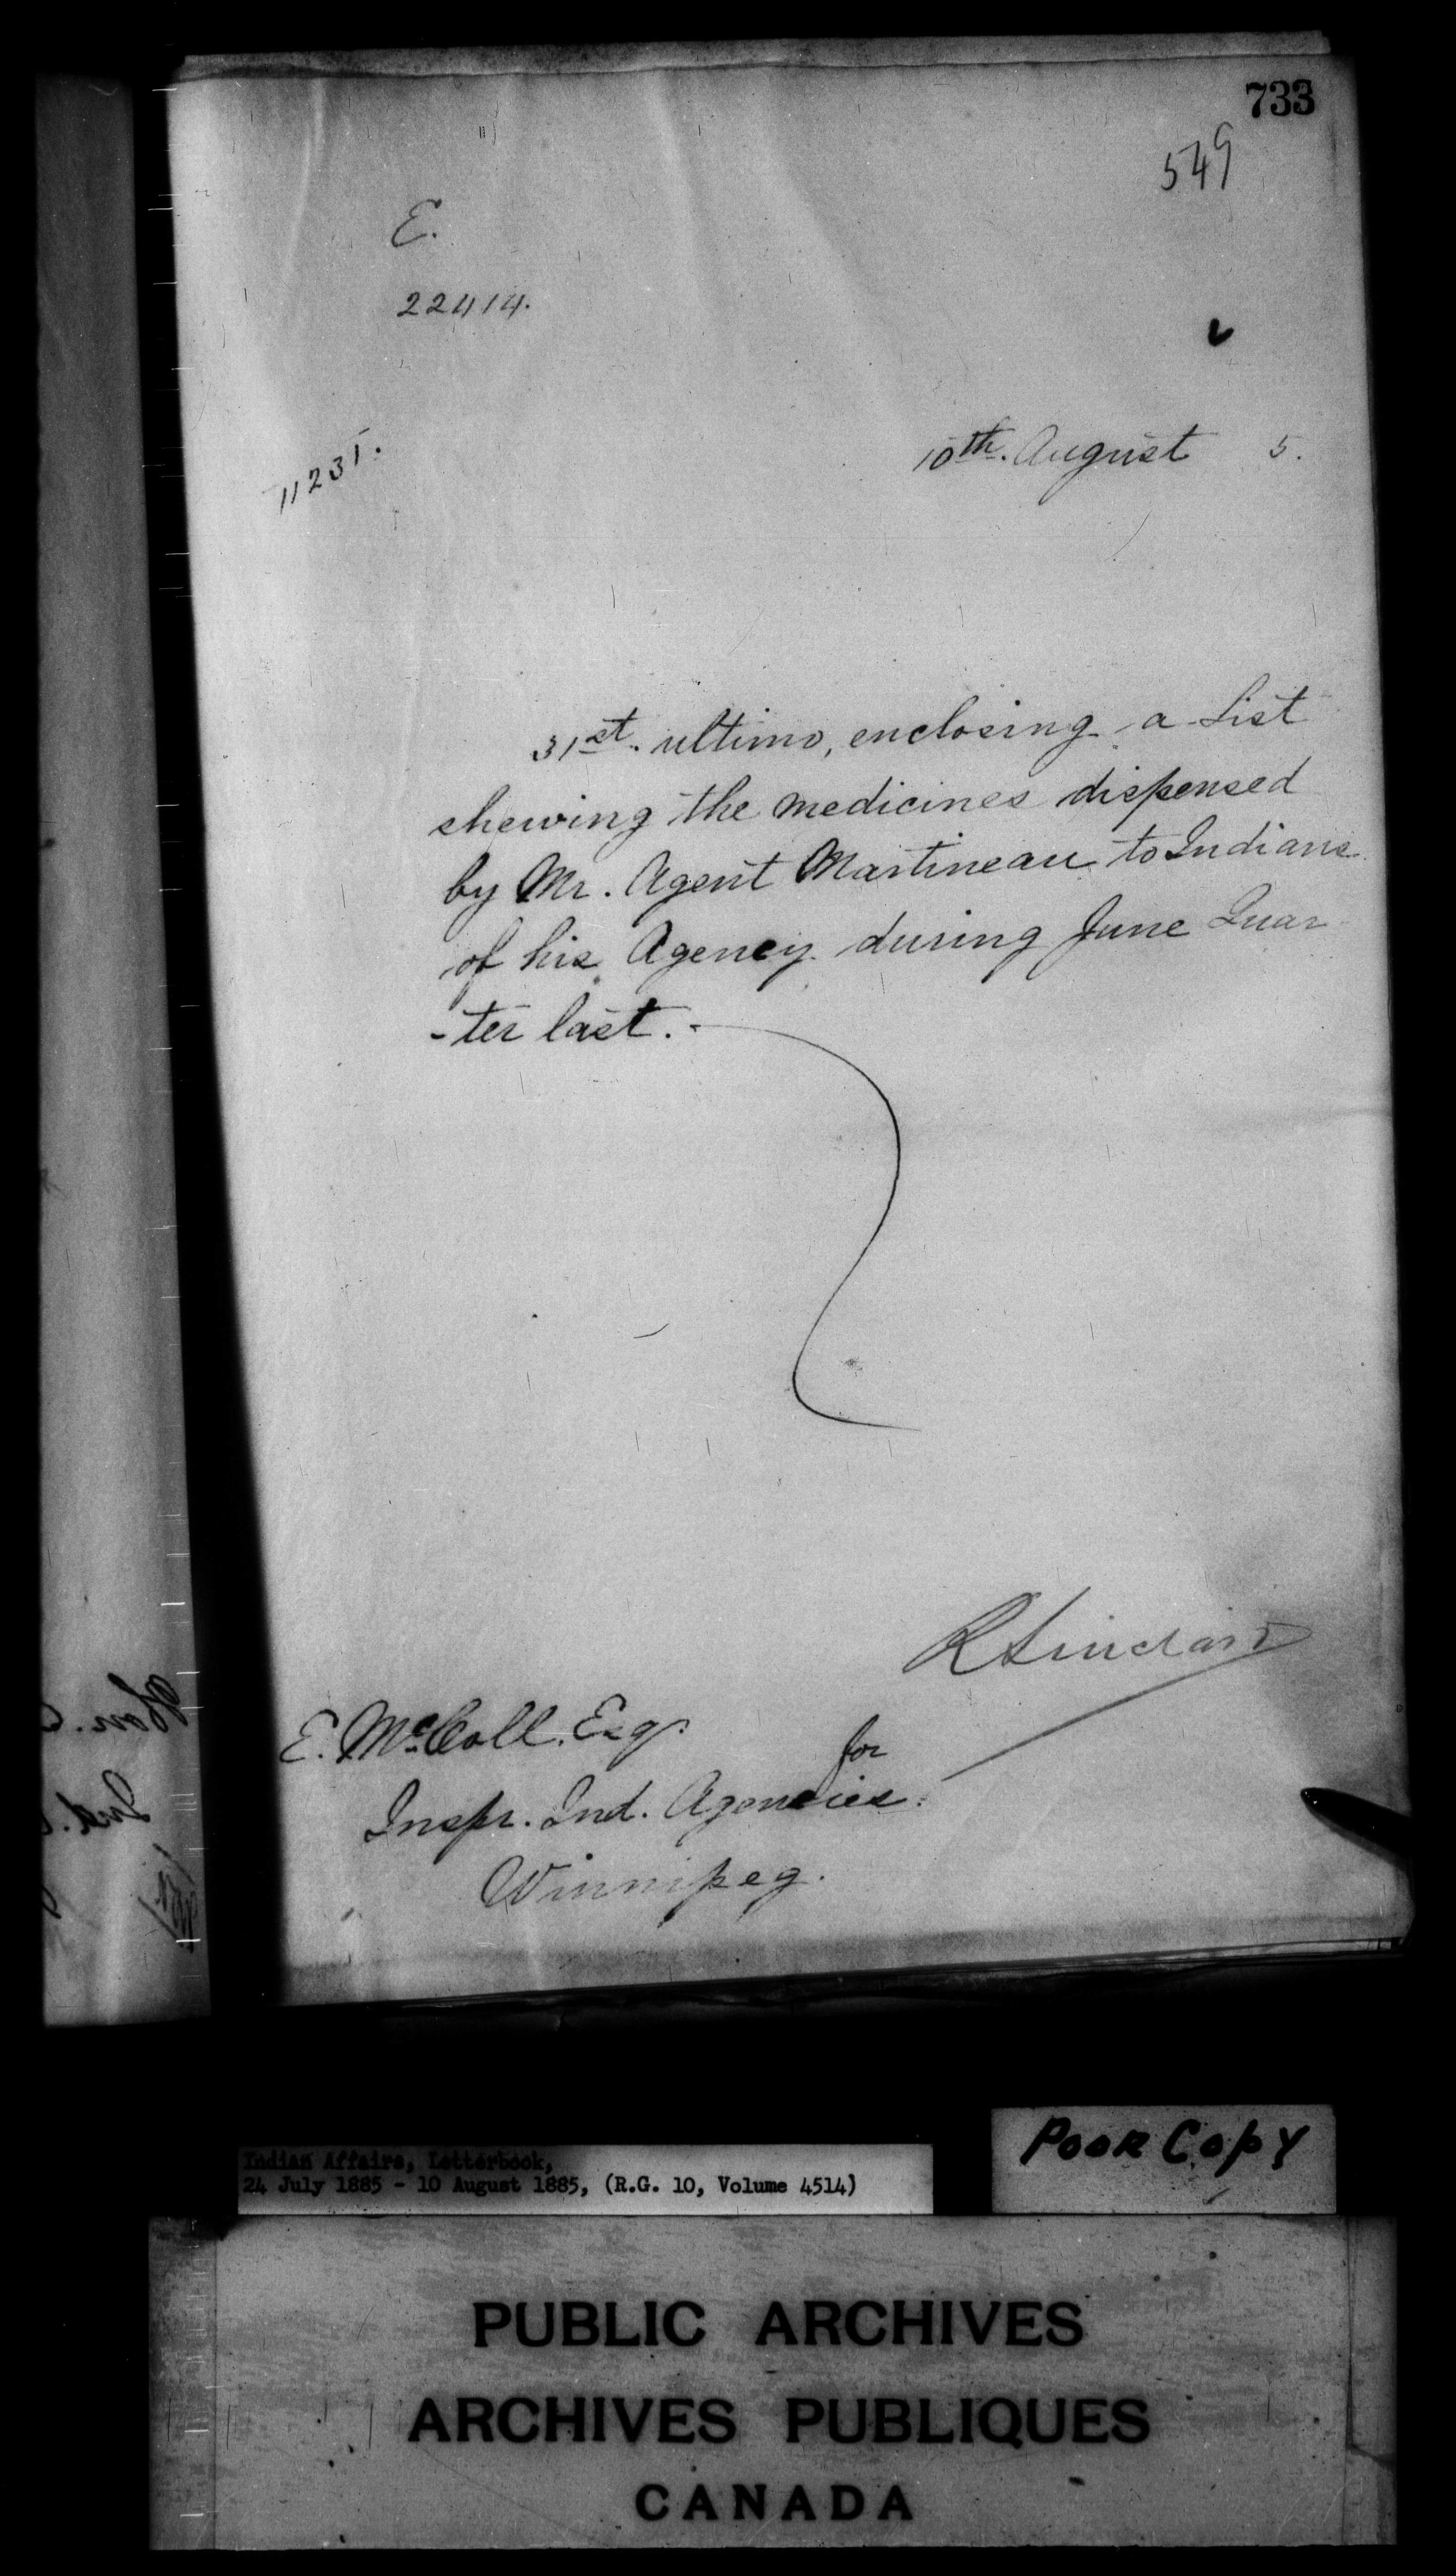 733
549
E.
22414.
11231.
10th. August 5.
31st. ultimo, enclosing a List
shewing the medicines dispensed
by Mr. Agent Martineau to Indians
of his Agency during June Quar
-ter last. -
RSinclair
E. McColl, Esqr.
for
Inspr. Ind. Agencies.
Winnipeg.
Hon.
Ind.
Poor Copy
Indian Affairs, Letterbook,
24 July 1885 - 10 August 1885, (R.G. 10, Volume 4514)
PUBLIC ARCHIVES
ARCHIVES PUBLIQUES
CANADA